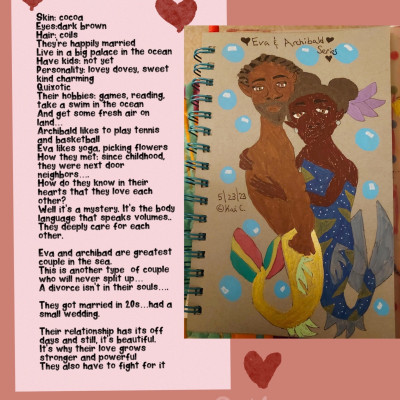 Skin: cocoa
Eyes:dark brown
Hair: coils
They're happily married
Live in a big palace in the ocean
Have kids: not yet
Personality: lovey dovey, sweet
kind charming
Quixotic
Their hobbies: games, reading,
take a swim in the ocean
And get some fresh air on
land...
Archibald likes to play tennis
and basketball
Eva likes yoga, picking flowers
How they met: since childhood,
they were next door
neighbors....
How do they know in their
hearts that they love each
other?
Well it's a mystery. It's the body
language that speaks volumes..
They deeply care for each
other.
Eva and archibad are greatest
couple in the sea.
This is another type of couple
who will never split up...
A divorce isn't in their souls....
They got married in 20s...had a
small wedding.
Their relationship has its off
days and still, it's beautiful.
It's why their love grows
stronger and powerful
They also have to fight for it
Eva & Archibald
Series
5/23/23